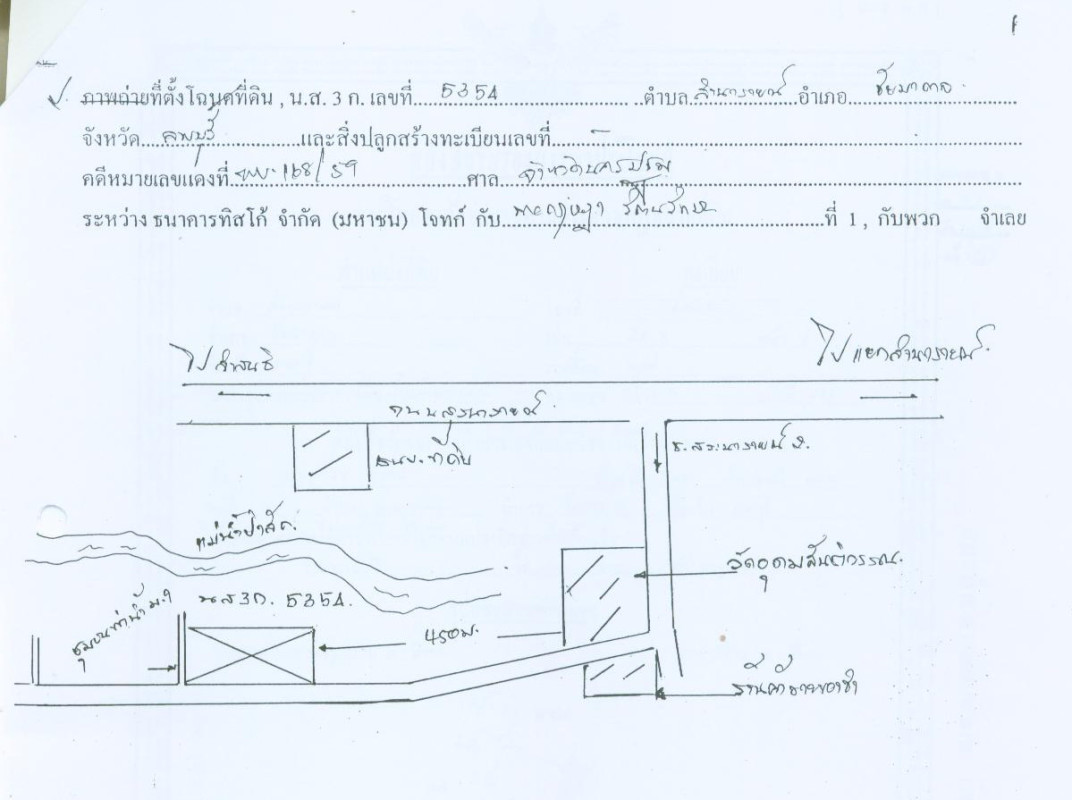 ภาพถ่ายที่ตั้งโฉนดที่ดิน , น.ส. 3 ก. เลขที่....5354.... ตำบล.ลำนารายณ์ อำเภอ...ชัยบาดาล
จังหวัด....ลพบุรี....และสิ่งปลูกสร้างทะเบียนเลขที่....-....
คดีหมายเลขแดงที่....168/59....ศาล....จังหวัดนครปฐม
ระหว่าง ธนาคารทิสโก้ จำกัด (มหาชน) โจทก์ กับ....ที่ 1 , กับพวก จำเลย
ไป ลำสนธิ
ไป แยกลำนารายณ์
ถนนสุระนารายณ์
ซ.สระนารายณ์
สนง.ที่ดิน
แม่น้ำป่าสัก
วัดอุดมสันติวรรณ
นส3ก. 5354.
450ม.